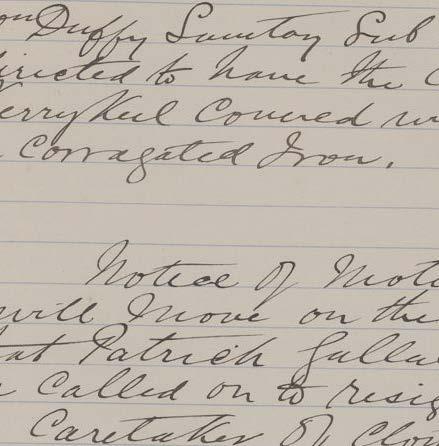 on Duffy Sanitary Sub
irected to have the C
errykeel Covered w
Corragated Iron.
Notice of Moti
will Move on the
at Patrick Galla
Called on to resig
Caretaker of Clo